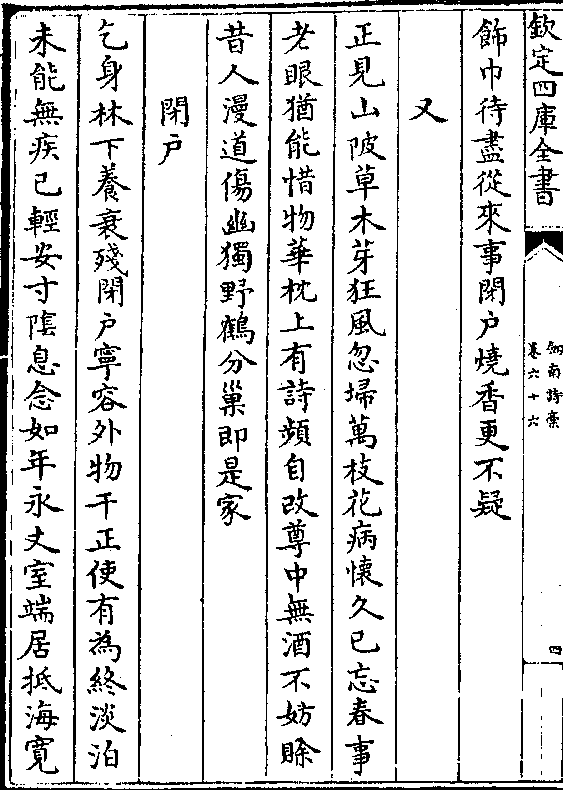 欽定四庫全書
劒南詩槀
卷六十六
四
飾巾待盡從來事閉戶燒香更不疑
又
正見山陂草木芽狂風忽埽萬枝花病懷久已忘春事
老眼猶能惜物華枕上有詩頻自改尊中無酒不妨賖
昔人漫道傷幽獨野鶴分巢即是家
閉戶
乞身林下養衰殘閉戶寧容外物干正使有為終淡泊
未能無疾已輕安寸隂息念如年永丈室端居抵海寛